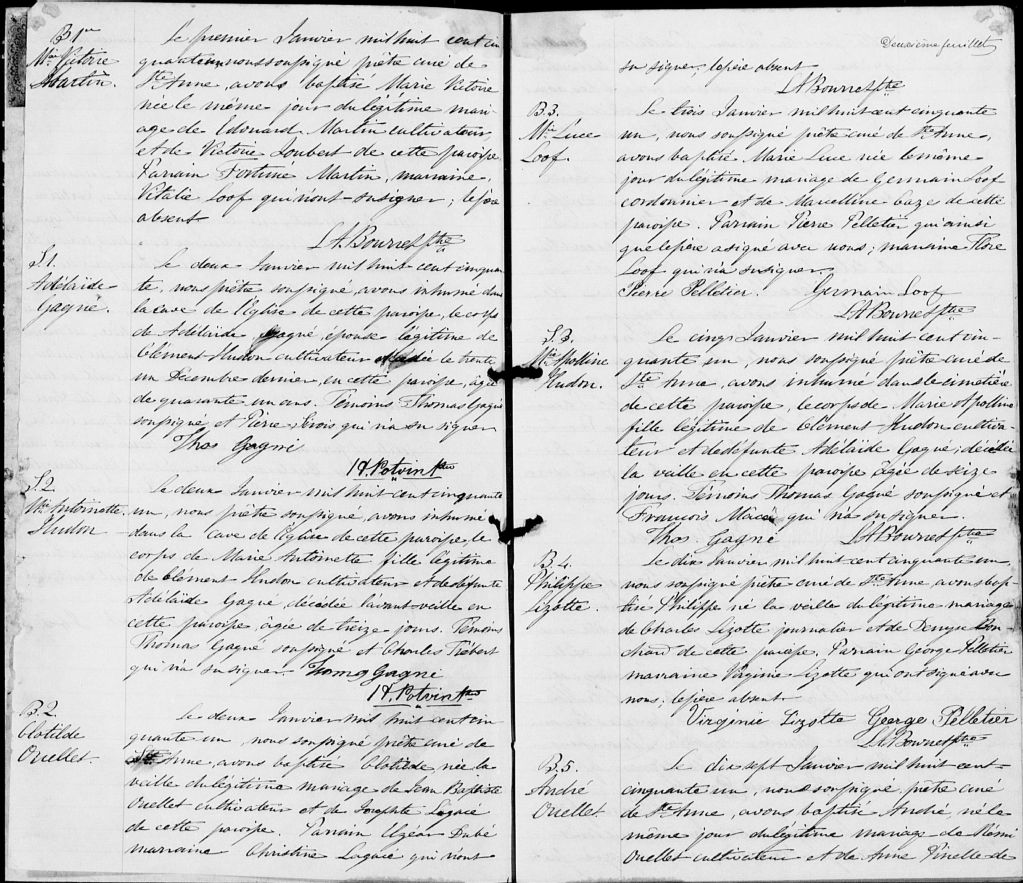 B 1re
Mie Victoire
Martin.
Le premier Janvier mil huit cent cin
quante un nous soussigné prêtre curé de
Ste Anne, avons baptisé Marie Victoire
née le même jour du légitime mari-
age de Edouard Martin cultivateur
et de Victoire Joubert de cette paroisse
Parrain Fortune Martin, marraine
Vitalie Loof qui n'ont su signer; le père
absent
LABourret Ptre
S.1.
Adélaïde
Gagné.
Le deux Janvier mil huit cent cinquan
te, nous prêtre soussigné, avons inhumé dans
la cave de l'Eglise de cette paroisse, le corps
de Adélaïde Gagné, épouse légitime de
Clément Hudon cultivateur décédée le trente
un Décembre dernier, en cette paroisse, âgée
de quarante un ans. Témoins Thomas Gagné
soussigné et Pierre Sirois qui n'a su signer
Thos Gagné
H. Potvin Ptre
S.2
Mie Antoinette
Hudon
Le deux Janvier mil huit cent cinquante
un, nous prêtre soussigné, avons inhumé
dans la Cave de l'Eglise de cette paroisse, le
corps de Marie Antoinette fille légitime
de Clément Hudon cultivateur et de défunte
Adélaïde Gagné, décédée l'avant-veille en
cette paroisse âgée de treize jours. Témoins
Thomas Gagné soussigné et Charles Thébert
qui n'a su signer. Thomas Gagné
H. Potvin Ptre
B.2
Clotilde
Ouellet.
Le deux Janvier mil huit cent cin
quante un, nous soussigné prêtre curé de
Ste Anne, avons baptisé Clotilde, née la
veille du légitime mariage de Jean Baptiste
Ouellet cultivateur et de Josephte Lagacé
de cette paroisse. Parrain Elzéar Dubé
marraine Christine Lagacé qui n'ont
Deuxième feuillet
su signer, le père absent
LABourret Ptre
B.3.
Mie Luce
Loof.
Le trois Janvier mil huit cent cinquante
un, nous soussigné prêtre curé de Ste Anne,
avons baptisé Marie Luce née le même
jour du légitime mariage de Germain Loof
cordonnier et de Marcelline Caze de cette
paroisse. Parrain Pierre Pelletier qui ainsi
que le père a signé avec nous; marraine Flore
Loof qui n'a su signer.
Pierre Pelletier. Germain Loof
LABourret Ptre
S.3.
Mie Apolline
Hudon.
Le cinq Janvier mil huit cent cin-
quante un, nous soussigné prêtre curé de
Ste Anne, avons inhumé dans le cimetière
de cette paroisse, le corps de Marie Apolline
fille légitime de Clément Hudon cultiva-
teur et de défunte Adélaïde Gagné, décédée
la veille en cette paroisse âgée de seize
jours. Témoins Thomas Gagné soussigné et
François Macé qui n'a su signer.
Thos. Gagné LABourret Ptre
B.4.
Philippe
Lizotte.
Le dix Janvier mil huit cent cinquante un
nous soussigné prêtre curé de Ste Anne, avons bap-
tisé Philippe né la veille du légitime mariage
de Charles Lizotte journalier et de Denyse
chard de cette paroisse, Parrain George Pelletier
marraine Virginie Lizotte qui ont signé avec
nous, le père absent.
Virginie Lizotte George Pelletier
LABourret Ptre
B.5.
André
Ouellet.
Le dix sept Janvier mil huit cent-
cinquante un, nous soussigné, prêtre curé
de Ste Anne, avons baptisé André, né le
même jour du légitime mariage de Rémi
Ouellet cultivateur et de Anne Pinelle de